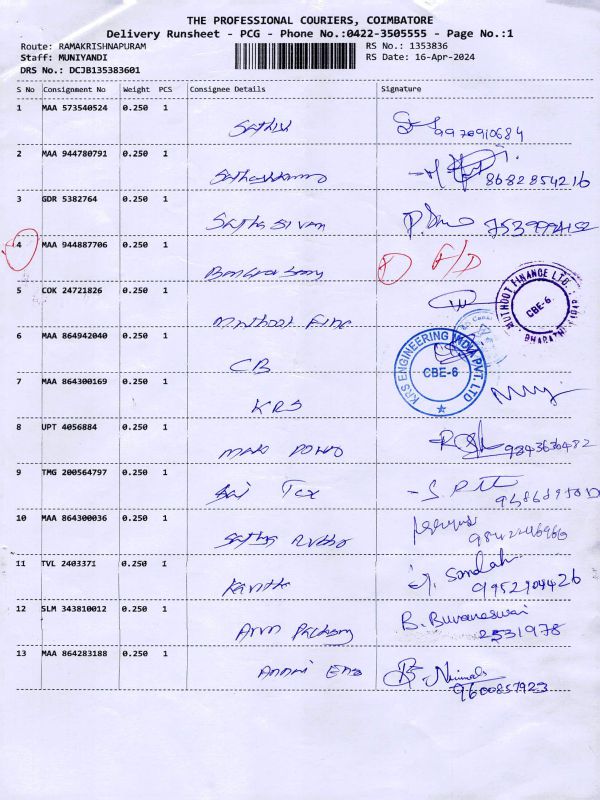 THE PROFESSIONAL COURIERS, COIMBATORE
Delivery Runsheet - PCG - Phone No.:0422-3505555 - Page No.:1
Route: RAMAKRISHNAPURAM RS No.: 1353836
Staff: MUNIYANDI RS Date: 16-Apr-2024
DRS No.: DCJB135383601
S No Consignment No Weight PCS Consignee Details Signature
1 MAA 573540524 0.250 1
Sathish 9970910684
2 MAA 944780791 0.250 1
8682854216
3 GDR 5382764 0.250 1
Sathasivam
4 MAA 944887706 0.250 1
5 COK 24721826 0.250 1
Muthoot Finc
MUTHOOT FINANCE LTD. CBE-6
6 MAA 864942040 0.250 1
CB
KRS ENGINEERING INDIA PVT. LTD CBE-6
7 MAA 864300169 0.250 1
KRS
8 UPT 4056884 0.250 1
9343630482
9 TMG 200564797 0.250 1
Sai Tex
10 MAA 864300036 0.250 1
11 TVL 2403371 0.250 1
Kavitha 9952904426
12 SLM 343810012 0.250 1
Arun B. Buvaneswari
2531978
13 MAA 864283188 0.250 1
Annai Eng Nirmala
9600857923